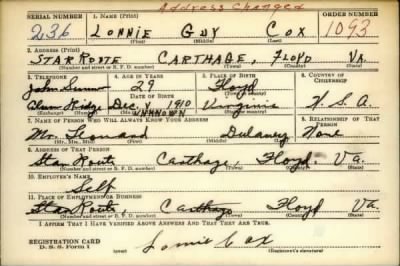 Address Changed
SERIAL NUMBER 1. NAME (Print) ORDER NUMBER
236 LONNIE GUY COX 1093
(First) (Middle) (Last)
2. ADDRESS (Print)
STAR ROUTE CARTHAGE, FLOYD VA.
(Number and street or R. F. D. number) (Town) (County) (State)
3. TELEPHONE 4. AGE IN YEARS 5. PLACE OF BIRTH 6. COUNTRY OF CITIZENSHIP
John 29 Floyd
DATE OF BIRTH (Town or county)
Alum Ridge Dec. 1910 Virginia U. S. A.
UNKNOWN
(Exchange) (Number) (Mo.) (Day) (Yr.) (State or country)
7. NAME OF PERSON WHO WILL ALWAYS KNOW YOUR ADDRESS 8. RELATIONSHIP OF THAT PERSON
Mr. Leonard Dulaney None
(Mr., Mrs., Miss) (First) (Middle) (Last)
9. ADDRESS OF THAT PERSON
Star Route Carthage, Floyd Va.
(Number and street or R. F. D. number) (Town) (County) (State)
10. EMPLOYER'S NAME
Self
11. PLACE OF EMPLOYMENT OR BUSINESS
Star Route, Carthage Floyd Va.
(Number and street or R. F. D. number) (Town) (County) (State)
I AFFIRM THAT I HAVE VERIFIED ABOVE ANSWERS AND THAT THEY ARE TRUE.
REGISTRATION CARD
D. S. S. Form 1 Lonnie Cox
(Registrant's signature)